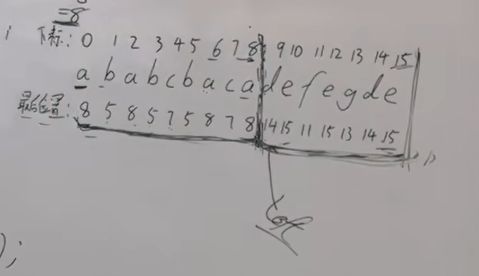 =8
下标: 0 1 2 3 4 5 6 7 8 9 10 11 12 13 14 15
a b a b c b a c a d e f e g d e
最后位置: 8 5 8 5 7 5 8 7 8 14 15 11 15 13 14 15
);